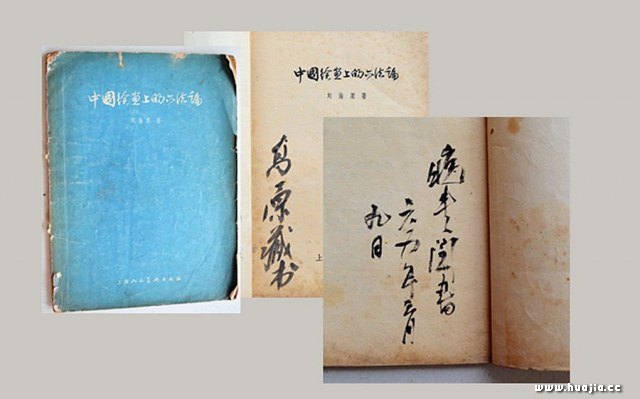 中國繪畫上的六法論
刘海粟 著
上海人民美術出版社
中國繪畫上的六法論
刘海粟 著
高原藏书
上
六九年
九日
www.huajia.cc